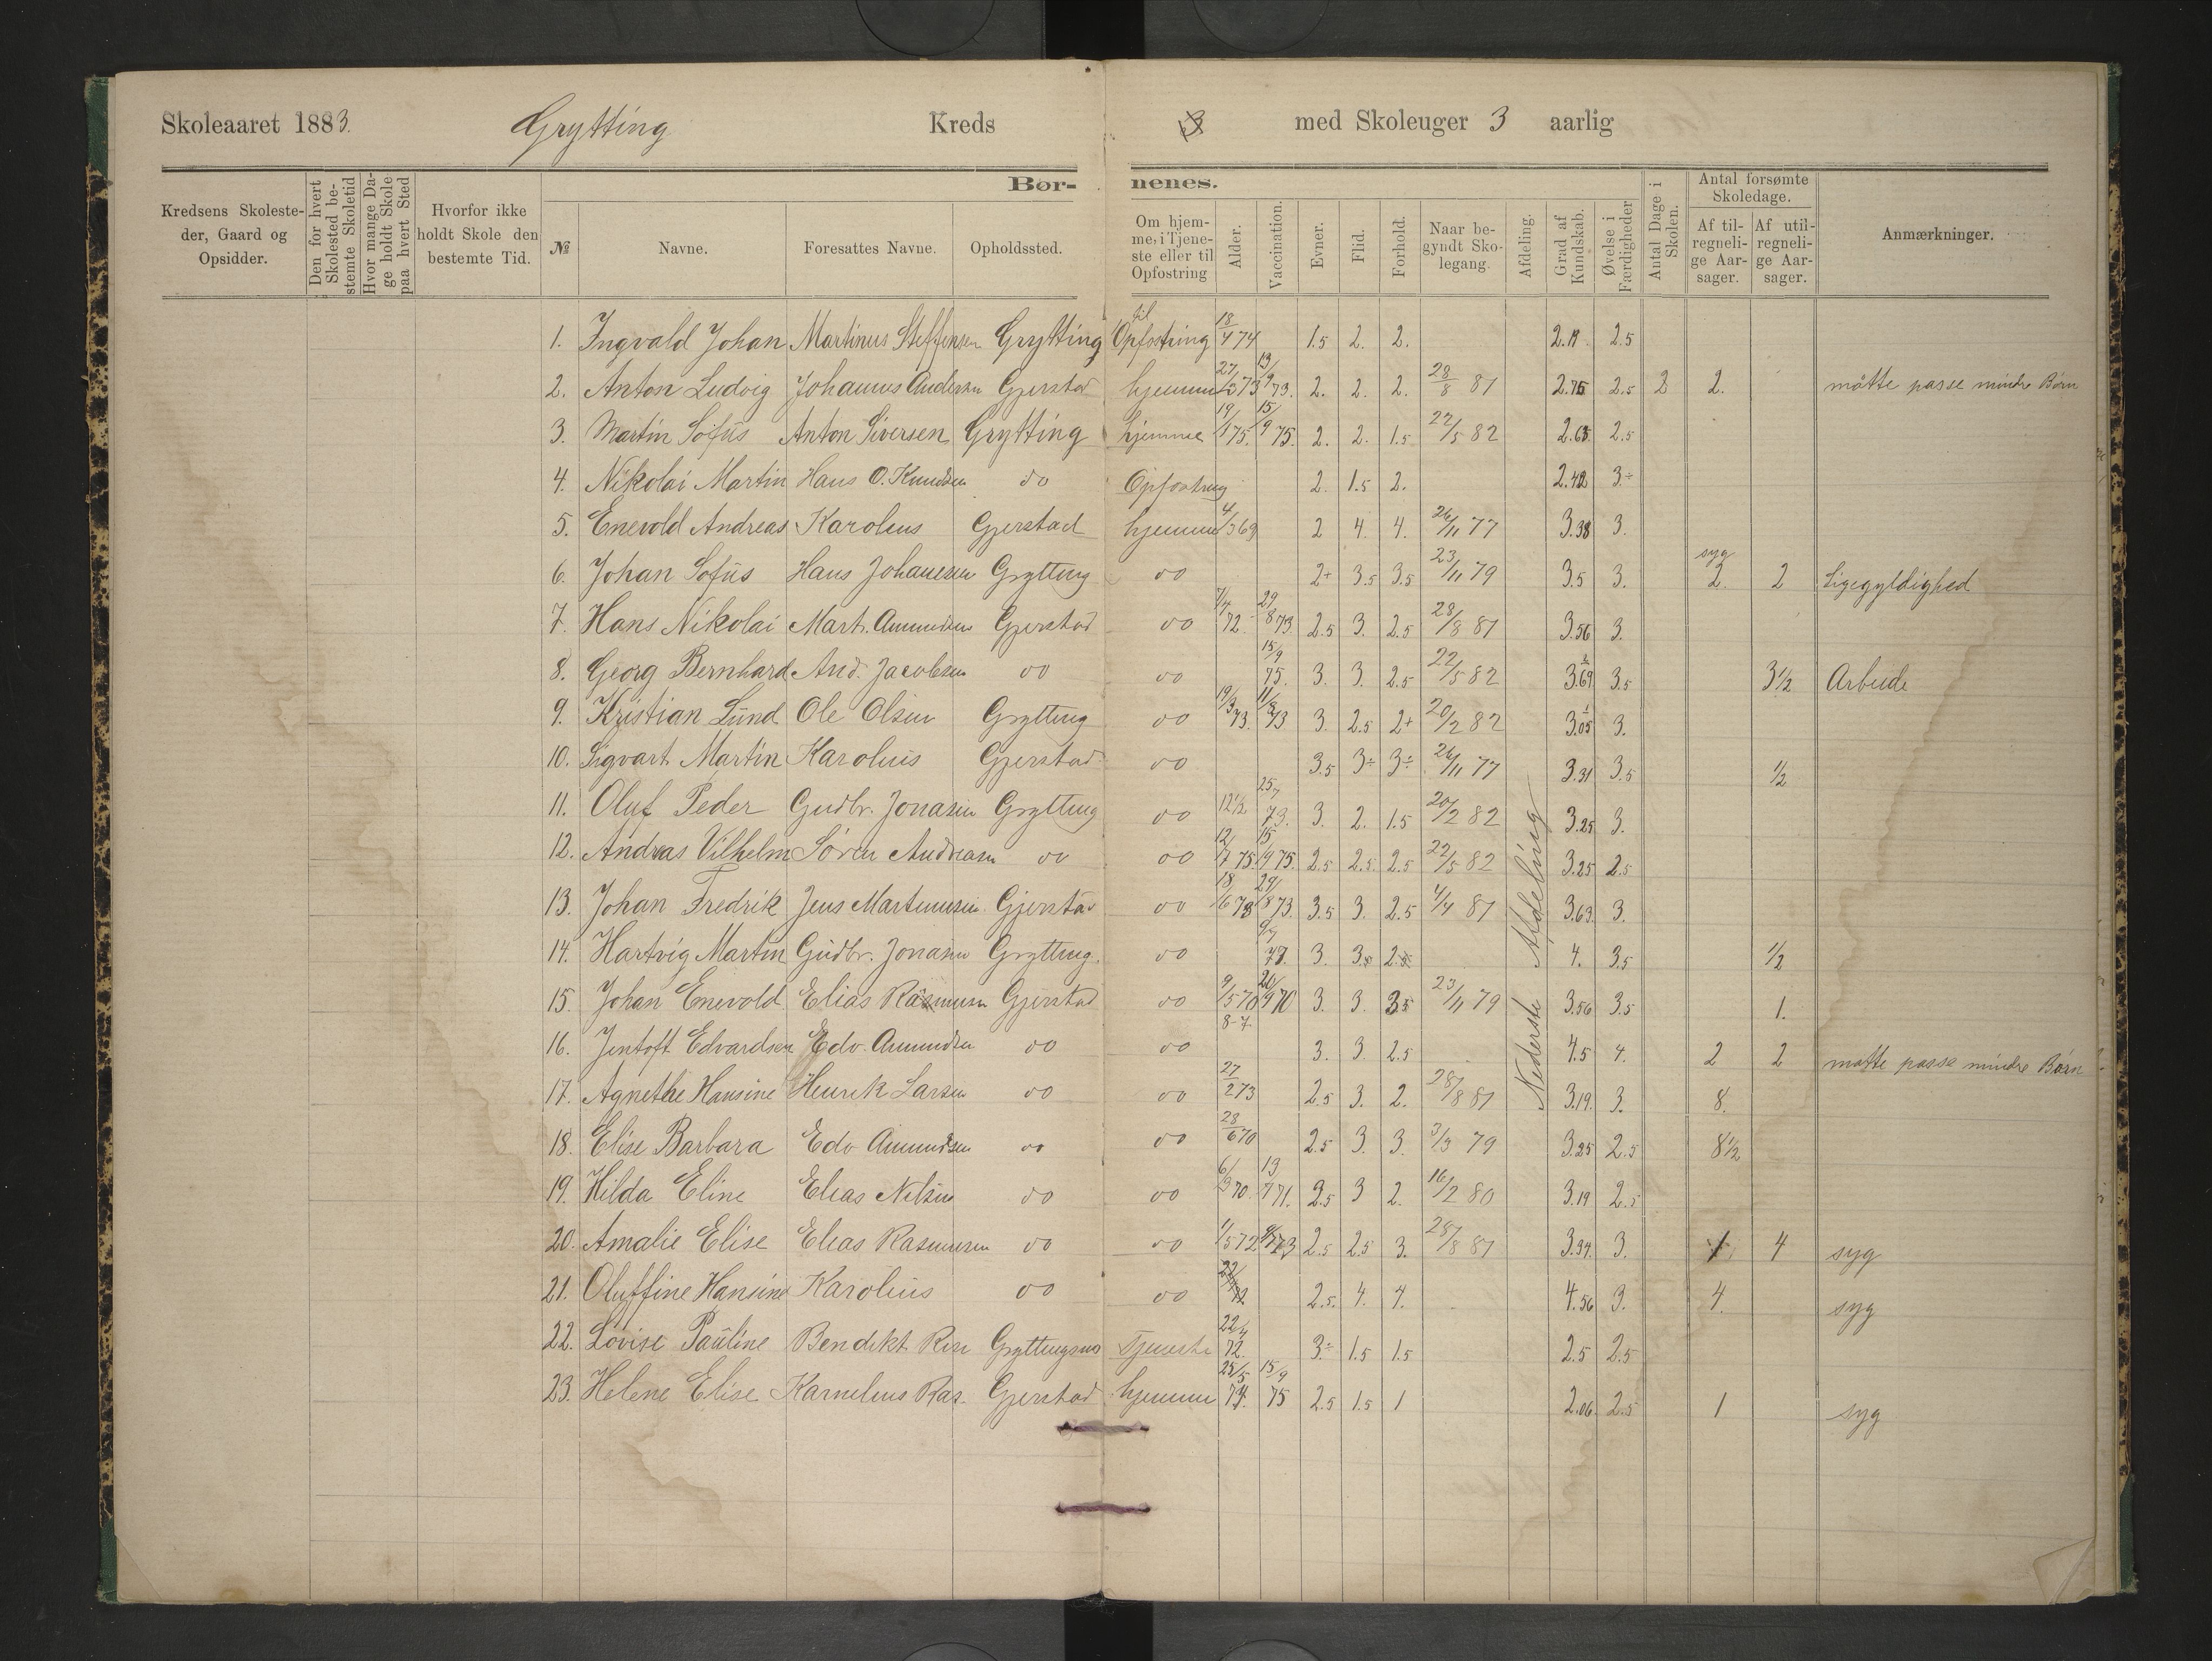 Skoleaaret 1883. Grytting Kreds 3 med Skoleuger 3 aarlig
Kredsens Skolesteder, Gaard og Opsidder. Den for hvert Skolested bestemte Skoletid Hvor mange Dage holdt Skole paa hvert Sted Hvorfor ikke holdt Skole den bestemte Tid. Børnenes. Antal Dage i Skolen. Antal forsømte Skoledage. Anmærkninger.
№ Navne. Foresattes Navne. Opholdssted. Om hjemme, i Tjeneste eller til Opfostring Alder. Vaccination. Evner. Flid. Forhold. Naar begyndt Skolegang. Afdeling. Grad af Kundskab. Øvelse i Færdigheder Af tilregnelige Aarsager. Af utilregnelige Aarsager.
1. Ingvald Johan Martinus Steffensen Grytting til Opfostring 18/4 74 1.5 2. 2. 2.5
2. Anton Ludvig Johannes Andersen Gjerstad hjemme 13/9 73. 2. 2. 2. 28/8 81 2.75 2.5 2 2. måtte passe mindre Børn
3. Martin Sofus Anton Siversen Grytting hjemme 19/1 75. 15/9 75. 2. 2. 1.5 22/5 82 2.63 2.5
4. Nikolai Martin Hans O. Knudsen do Opfostring 2. 1.5 2. 3÷
5. Enevold Andreas Karolius Gjerstad hjemme 4/3 69 2 4. 4. 26/11 77 3.38 3.
6. Johan Sofus Hans Johansen Grytting do 2+ 3.5 3.5 23/11 79 3.5 3. syg 2. 2 Ligegyldighed
7. Hans Nikolai Mart. Amundsen Gjerstad do 7/4 72. 29/8 73. 2.5 3. 2.5 28/8 81 3.56 3.
8. Georg Bernhard And. Jacobsen do do 15/9 75. 3. 3. 2.5 22/5 82 3.69 3.5 3½ Arbeide
9. Kristian Lund Ole Olsen Grytting do 19/3 73. 11/8 73 3. 2.5 2+ 20/2 82 3.05 3.
10. Sigvart Martin Karolius Gjerstad do 3.5 3÷ 3÷ 26/11 77 3.31 3.5 ½
11. Oluf Peder Gudbr. Jonasen Grytting do 12½ 25/7 73. 3. 2. 1.5 20/2 82 3.25 3.
12. Andreas Vilhelm Søren Andreasen do do 12/7 75. 15/9 75. 2.5 2.5. 2.5 22/5 82 3.25 2.5
13. Johan Fredrik Jens Martinusen Gjerstad do 18/6 73 29/8 73. 3.5 3. 2.5 4/4 81 3.63. 3.
14. Hartvig Martin Gudbr. Jonasen Grytting. do 3. 3.5 2.5 4. 3.5 ½
15. Johan Enevold Elias Rasmusen Gjerstad do 9/5 70 20/9 70 3. 3. 3.5 23/11 79 3.56 3.5 1.
16. Jentoft Edvardsen Edv. Amundsen do do 8-7. 3. 3. 2.5 4.5 4. 2 2 måtte passe mindre Børn
17. Agnethe Hansine Henrik Larsen do do 27/2 73 2.5 3. 2. 28/8 81 3.19. 3. 8.
18. Elise Barbara Edv Amundsen do do 28/6 70 2.5 3. 3. 3/3 79 3.25 2.5 8½
19. Hilda Eline Elias Nilsen do do 6/3 70. 13/7 71. 2.5 3 2. 16/2 80 3.19 2.5
20. Amalie Elise Elias Rasmusen do do 1/5 72. 2.5 2.5 3. 28/8 81 3.34. 3. 1 4 syg
21. Oluffine Hansine Karolius do do 2.5. 4. 4. 4.56 3. 4. syg
22. Lovise Pauline Bendikt Grytting Tjeneste 22/4 72. 3÷ 1.5 1.5 2.5 2.5
23. Helene Elise Karnelius Ras. Gjerstad hjemme 25/5 74. 15/9 75 2.5 1.5 1 2.06 2.5 1 syg
Nederste Afdeling